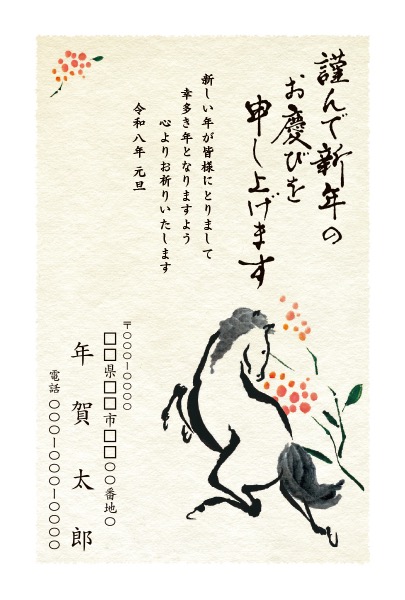 謹んで新年の
お慶びを
申し上げます
新しい年が皆様にとりまして
幸多き年となりますよう
心よりお祈りいたします
令和八年 元旦
〒○○○-○○○○
□□県□□市□□○○番地○
年賀太郎
電話 ○○○-○○○-○○○○